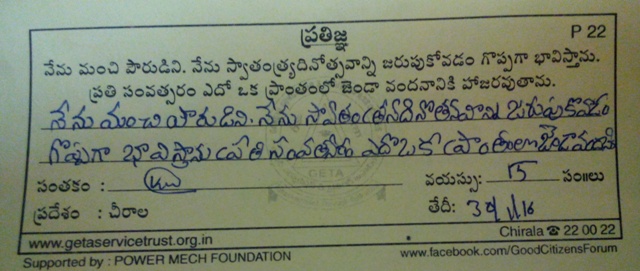 ప్రతిజ్ఞ
P 22
నేను మంచి పౌరుడిని. నేను స్వాతంత్ర్యదినోత్సవాన్ని జరుపుకోవడం గొప్పగా భావిస్తాను.
ప్రతి సంవత్సరం ఎదో ఒక ప్రాంతంలో జెండా వందనానికి హాజరవుతాను.
నేను మంచి పౌరుడిని. నేను స్వాతంత్ర్యదినోత్సవాన్ని జరుపుకోవడం
గొప్పగా భావిస్తాను ప్రతి సంవత్సరం ఎదో ఒక ప్రాంతంలో జెండా
సంతకం :
వయస్సు: 15 సం॥లు
ప్రదేశం : చీరాల
తేదీ:
GETA
Chirala ☎ 22 00 22
www.getaservicetrust.org.in
www.facebook.com/GoodCitizensForum
Supported by : POWER MECH FOUNDATION